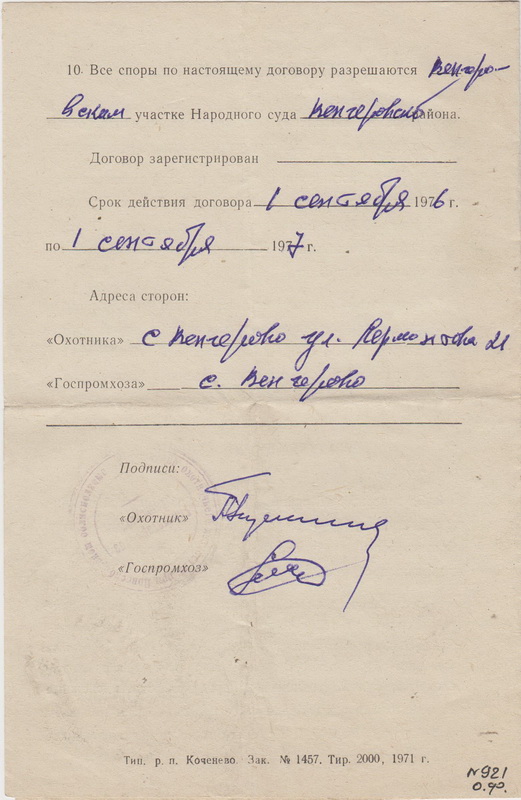 10. Все споры по настоящему договору разрешаются Венгеро-
вском участке Народного суда Венгеровского района.
Договор зарегистрирован
Срок действия договора 1 сентября 1976 г.
по 1 сентября 1977 г.
Адреса сторон:
«Охотника» с Венгерово ул. Лермонтова 21
«Госпромхоза» с. Венгерово
Подписи:
«Охотник»
«Госпромхоз»
Тип. р. п. Коченево. Зак. № 1457. Тир. 2000, 1971 г.
№921
о.ф.